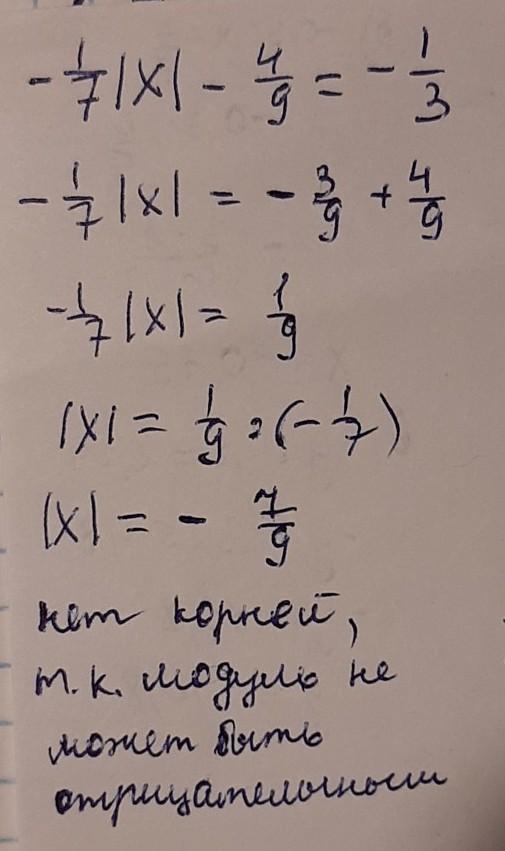 -1/7|x| - 4/9 = -1/3
-1/7|x| = -3/9 + 4/9
-1/7|x| = 1/9
|x| = 1/9 : (-1/7)
|x| = - 7/9
нет корней,
т.к. модуль не
может быть
отрицательным